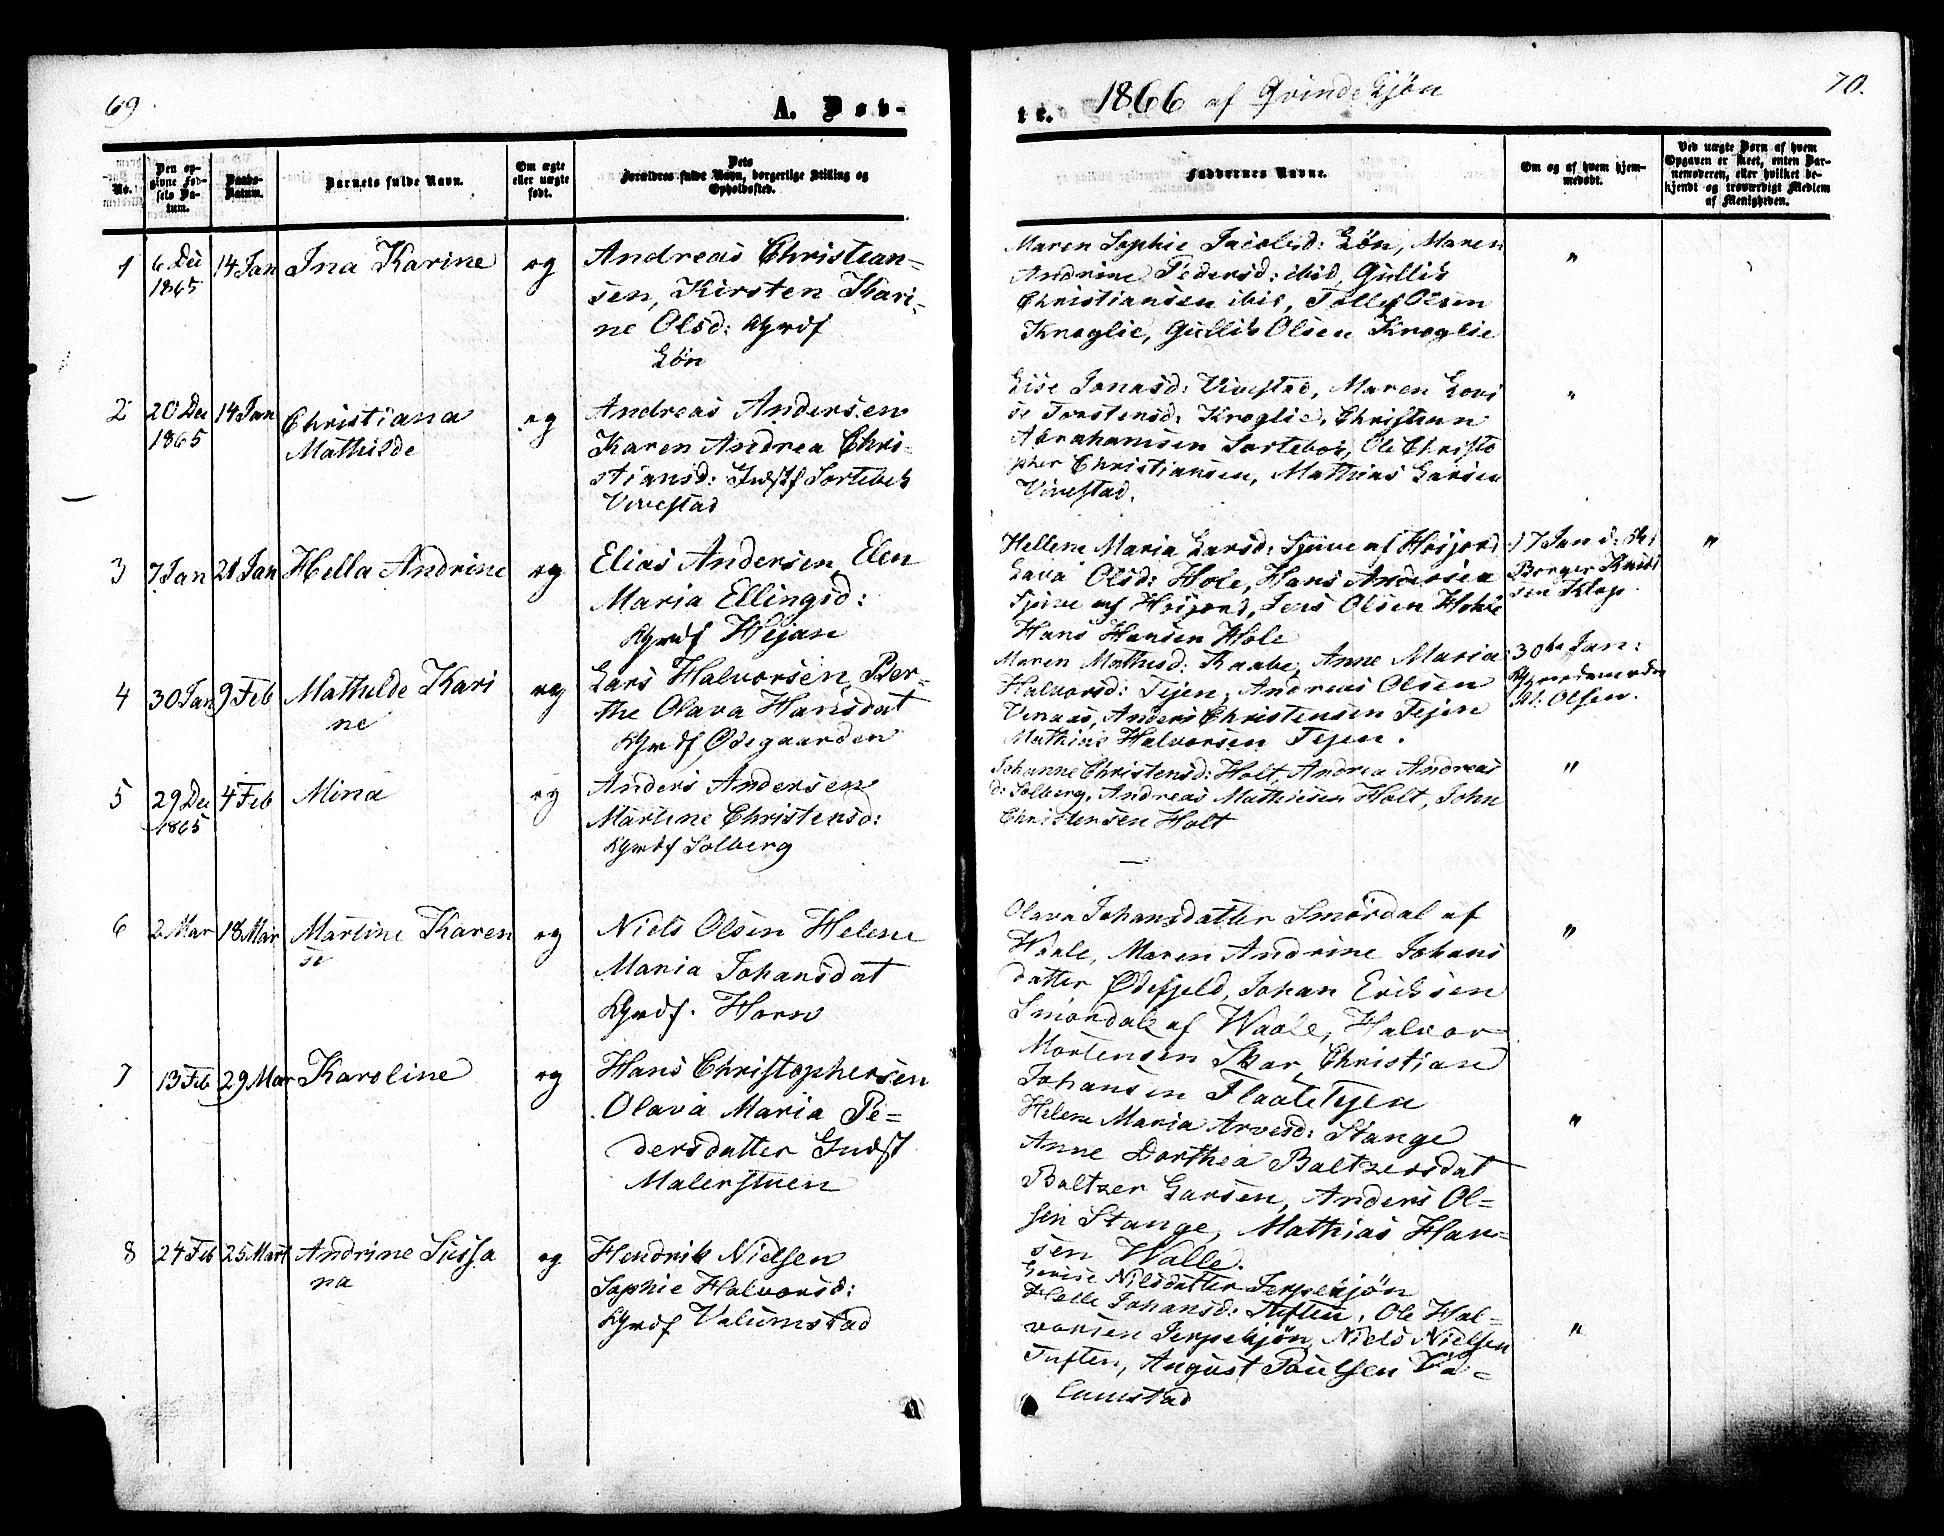 69
A. Døb-
te.
1866 af Qvindekjøn
70.
No.
Den op-
givne Fød-
sels Da-
tum.
Daabs-
Datum.
Barnets fulde Navn.
Om ægte
eller uægte
født.
Dets
Forældres fulde Navn, borgerlige Stilling og
Opholdssted.
Faddernes Navne.
Om og af hvem hjem-
medøbt.
Ved uægte Børn af hvem
Opgaven er skeet, enten Bar-
nemoderen, eller hvilket be-
kjendt og troværdigt Medlem
af Menigheden.
1
6 Dec
1865
14 Jan
Ina Karine
æg
Andreas Christian-
sen, Kirsten Kari-
ne Olsd: Gmdf
Løn
Maren Sophie Jacobsd: Løn, Maren
Andrine Pedersd: ibid, Gullik
Christiansen ibid, Tollef Olsen
Kroglie, Gullik Olsen Kroglie
"
2
20 Dec
1865
14 Jan
Christiana
Mathilde
æg
Andreas Andersen
Karen Andrea Chri-
stiansd: Indstf Sortebek
Vivestad
Lise Jonasd: Vivestad, Maren Lovi
se Torstensd: Kroglie, Christian
Abrahamsen Sortebek, Ole Christo
pher Christiansen, Mathias Larsen
Vivestad.
"
3
7 Jan
21 Jan
Hella Andrine
æg
Elias Andersen, Elen
Maria Ellingsd:
Gmdf Hejan
Hellene Maria Larsd: Tjuve af Hosjord
Lava Olsd: Hole, Hans Andersen
Tjuve af Hosjord, Jens Olsen Hole
Hans Hansen Hole
17 Jan d: A:
Borger Knud
sen Klop.
"
4
30 Jan
9 Feb
Mathilde Kari
ne
æg
Lars Halvorsen, Ber-
the Olava Hansdat
Gmdf Ødegaarden
Maren Mathisd: Raabe, Anne Maria
Halvorsd: Tejen, Andreas Olsen
Venaas, Anders Christensen Tejen
Mathias Halvorsen Tejen.
30te Jan:
Gjordemoder
M: Olsen.
5
29 Dec
1865
4 Feb
Mina
æg
Anders Andersen
Martine Christensd:
Gmdf Solberg
Johanne Christensd: Holt, Andrea Andreas
d: Solberg, Andreas Mathiesen Holt, John
Christensen Holt
"
6
2 Mar
18 Mar
Martine Karen
se
æg
Niels Olsen Helene
Maria Johansdat
Gmdf. Horn
Olava Johansdatter Smørdal af
Waale, Maren Andrine Johans
datter Ødefjeld, Johan Eriksen
Smørdal af Waale, Halvor
Mortensen Skar, Christian
Johansen FlaateTejen
"
7
13 Feb
29 Mar
Karoline
æg
Hans Christophersen
Olava Maria Pe-
dersdatter Indst
Malerstuen
Helene Maria Arvesd: Stange
Anne Dorthea Baltzersdat
Baltzer Larsen, Anders Ol-
sen Stange, Mathias Han-
sen Walle.
"
8
24 Feb
25 Mart
Andrine Sussa
na
æg
Hendrik Nielsen
Sophie Halvorsd:
Gmdf Valumstad
Lovise Nilsdatter Jerpekjøn
Helle Johansd: Tuften, Ole Hal-
vorsen Jerpekjøn, Niels Nielsen
Tuften, August Poulsen Va-
lumstad
"